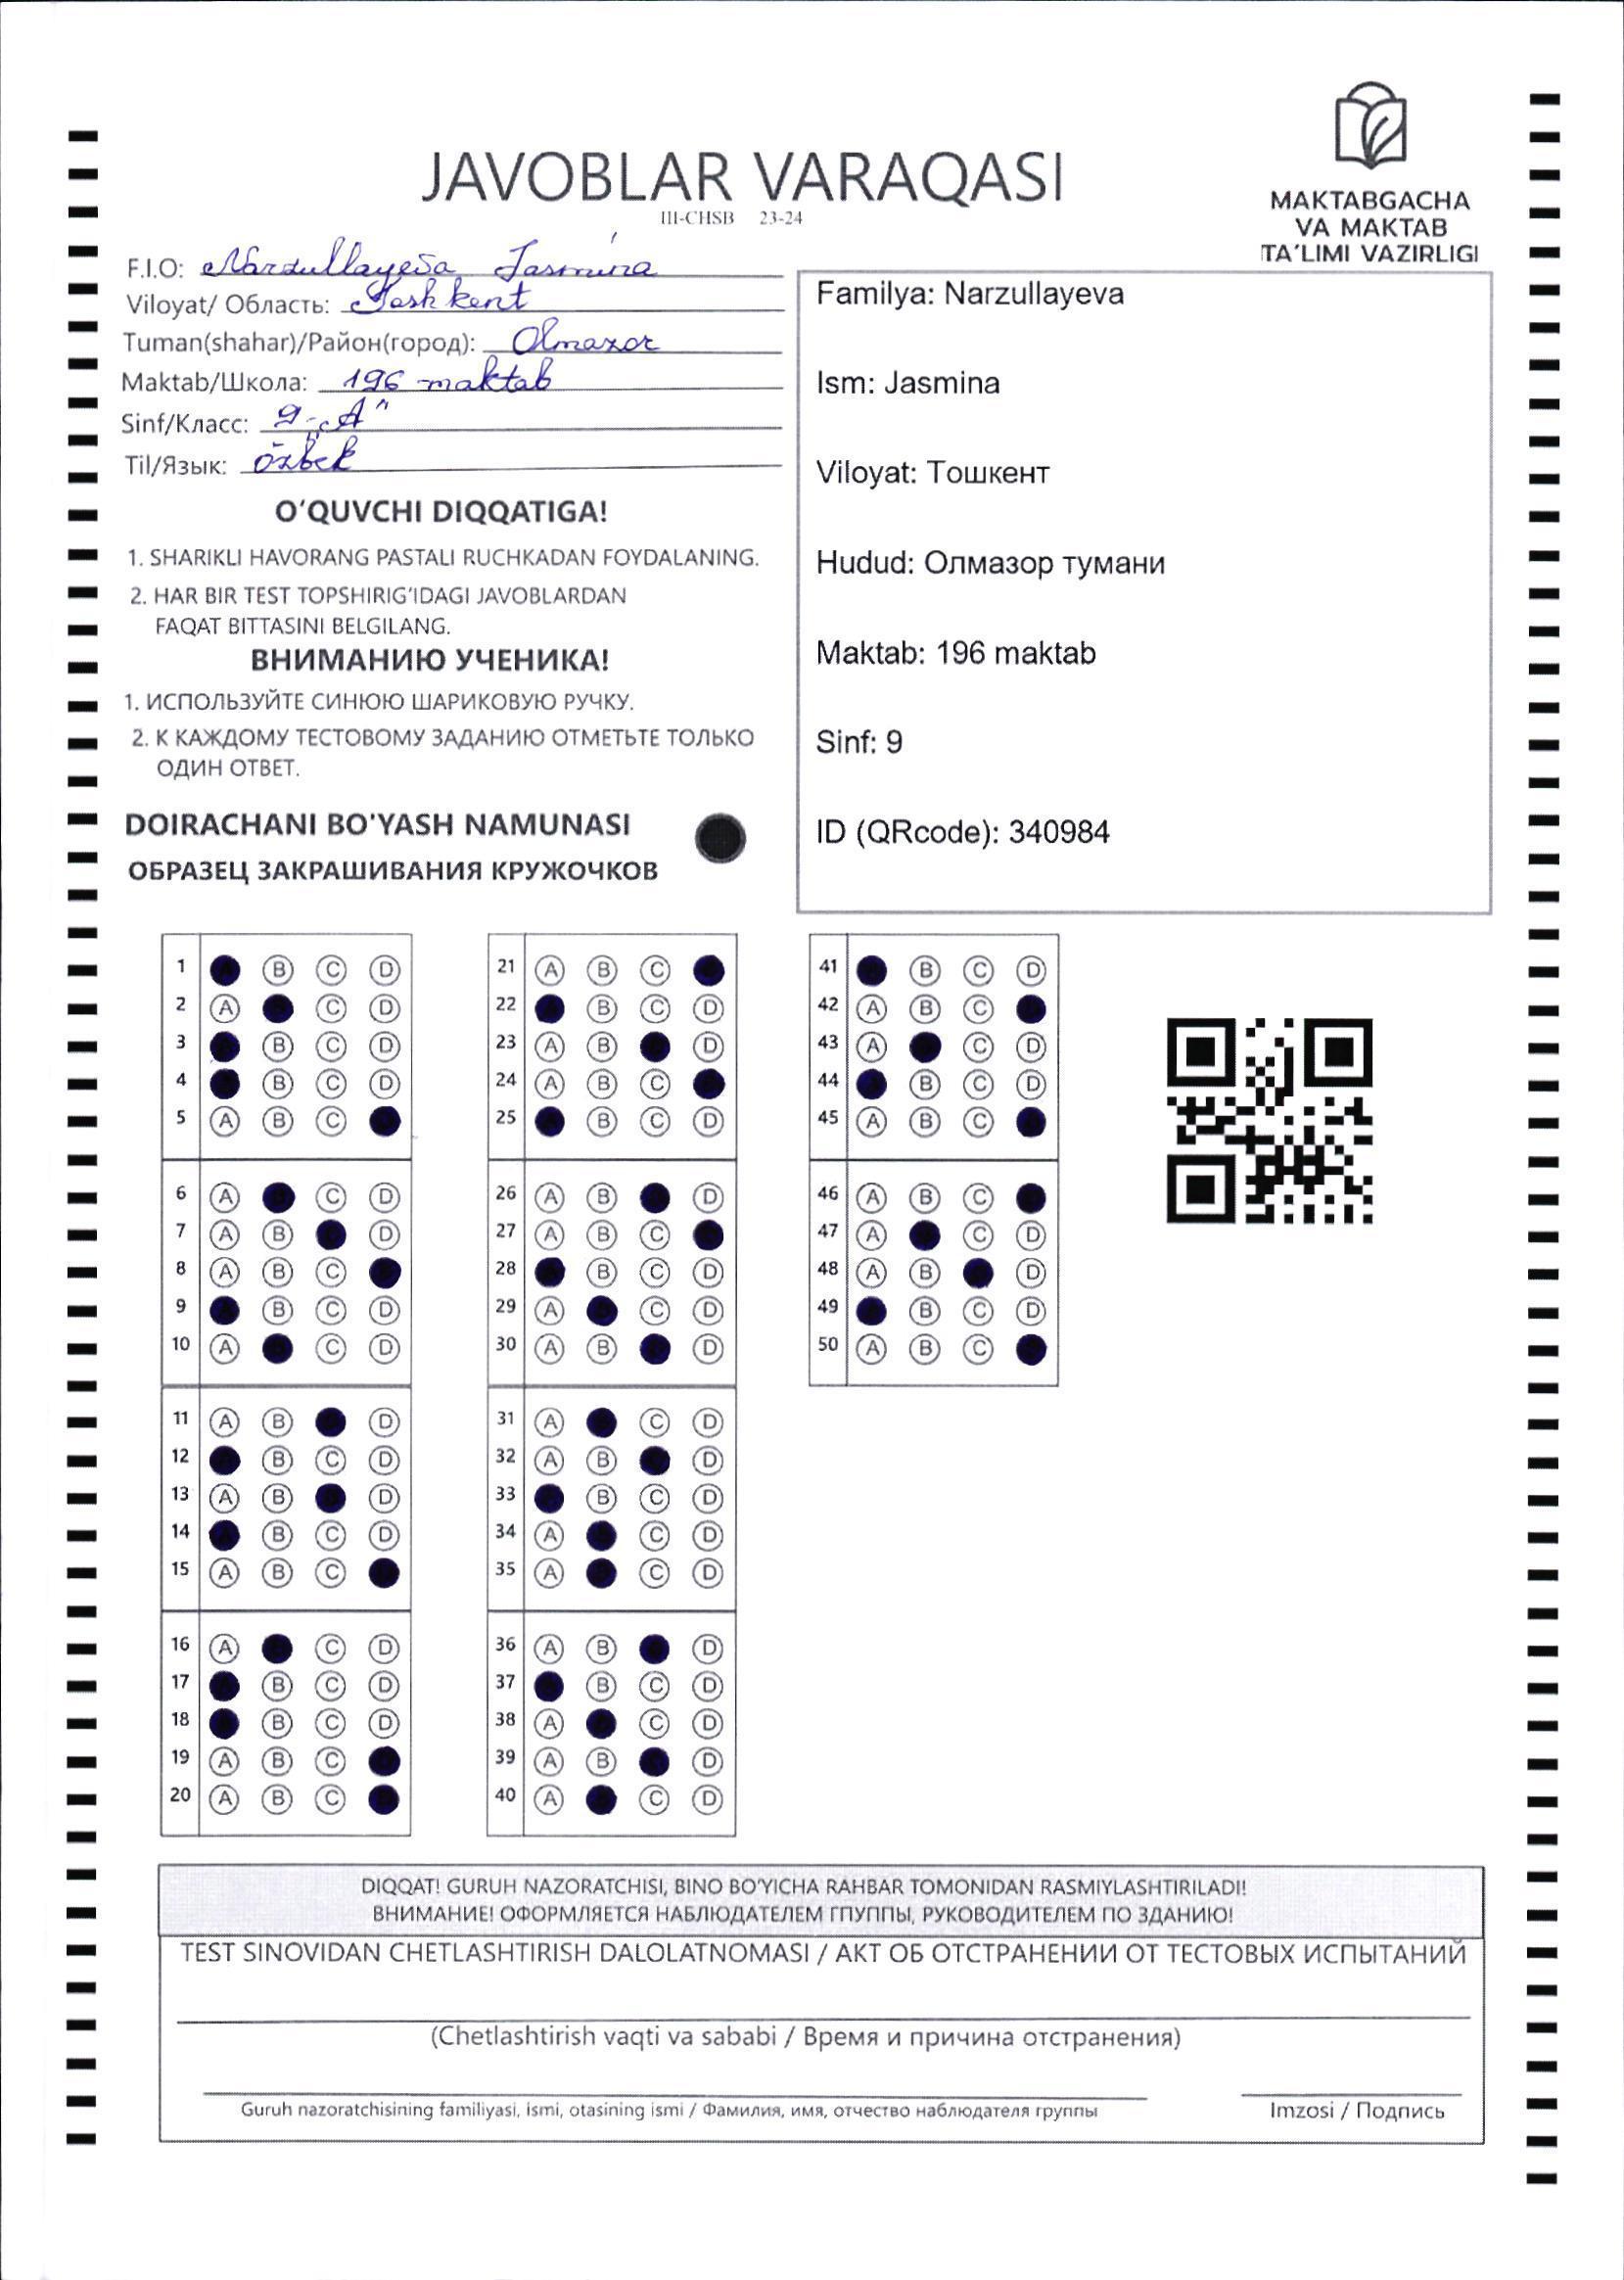 JAVOBLAR VARAQASI
III-CHSB 23-24
MAKTABGACHA
VA MAKTAB
TA'LIMI VAZIRLIGI
F.I.O: Narzullayeva Jasmina
Viloyat/ Область: Toshkent
Tuman(shahar)/Район(город): Olmazor
Maktab/Школа: 196 maktab
Sinf/Класс: 9-„A"
Til/Язык: õzbek
O'QUVCHI DIQQATIGA!
1. SHARIKLI HAVORANG PASTALI RUCHKADAN FOYDALANING.
2. HAR BIR TEST TOPSHIRIG'IDAGI JAVOBLARDAN
FAQAT BITTASINI BELGILANG.
ВНИМАНИЮ УЧЕНИКА!
1. ИСПОЛЬЗУЙТЕ СИНЮЮ ШАРИКОВУЮ РУЧКУ.
2. К КАЖДОМУ ТЕСТОВОМУ ЗАДАНИЮ ОТМЕТЬТЕ ТОЛЬКО
ОДИН ОТВЕТ.
DOIRACHANI BO'YASH NAMUNASI
ОБРАЗЕЦ ЗАКРАШИВАНИЯ КРУЖОЧКОВ
Familya: Narzullayeva
Ism: Jasmina
Viloyat: Тошкент
Hudud: Олмазор тумани
Maktab: 196 maktab
Sinf: 9
ID (QRcode): 340984
1 B C D
2 A C D
3 B C D
4 B C D
5 A B C
6 A C D
7 A B D
8 A B C
9 B C D
10 A C D
11 A B D
12 B C D
13 A B D
14 B C D
15 A B C
16 A C D
17 B C D
18 B C D
19 A B C
20 A B C
21 A B C
22 B C D
23 A B D
24 A B C
25 B C D
26 A B D
27 A B C
28 B C D
29 A C D
30 A B D
31 A C D
32 A B D
33 B C D
34 A C D
35 A C D
36 A B D
37 B C D
38 A C D
39 A B D
40 A C D
41 B C D
42 A B C
43 A C D
44 B C D
45 A B C
46 A B C
47 A C D
48 A B D
49 B C D
50 A B C
DIQQAT! GURUH NAZORATCHISI, BINO BO'YICHA RAHBAR TOMONIDAN RASMIYLASHTIRILADI!
ВНИМАНИЕ! ОФОРМЛЯЕТСЯ НАБЛЮДАТЕЛЕМ ГПУППЫ, РУКОВОДИТЕЛЕМ ПО ЗДАНИЮ!
TEST SINOVIDAN CHETLASHTIRISH DALOLATNOMASI / АКТ ОБ ОТСТРАНЕНИИ ОТ ТЕСТОВЫХ ИСПЫТАНИЙ
(Chetlashtirish vaqti va sababi / Время и причина отстранения)
Guruh nazoratchisining familiyasi, ismi, otasining ismi / Фамилия, имя, отчество наблюдателя группы
Imzosi / Подпись